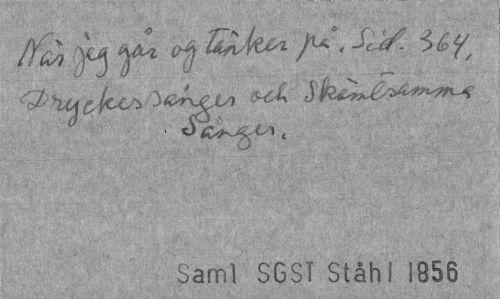 När jeg går og tänker på. Sid. 364,
Dryckessånger och Skämtsamma
Sånger.
Saml SGST Ståhl 1856